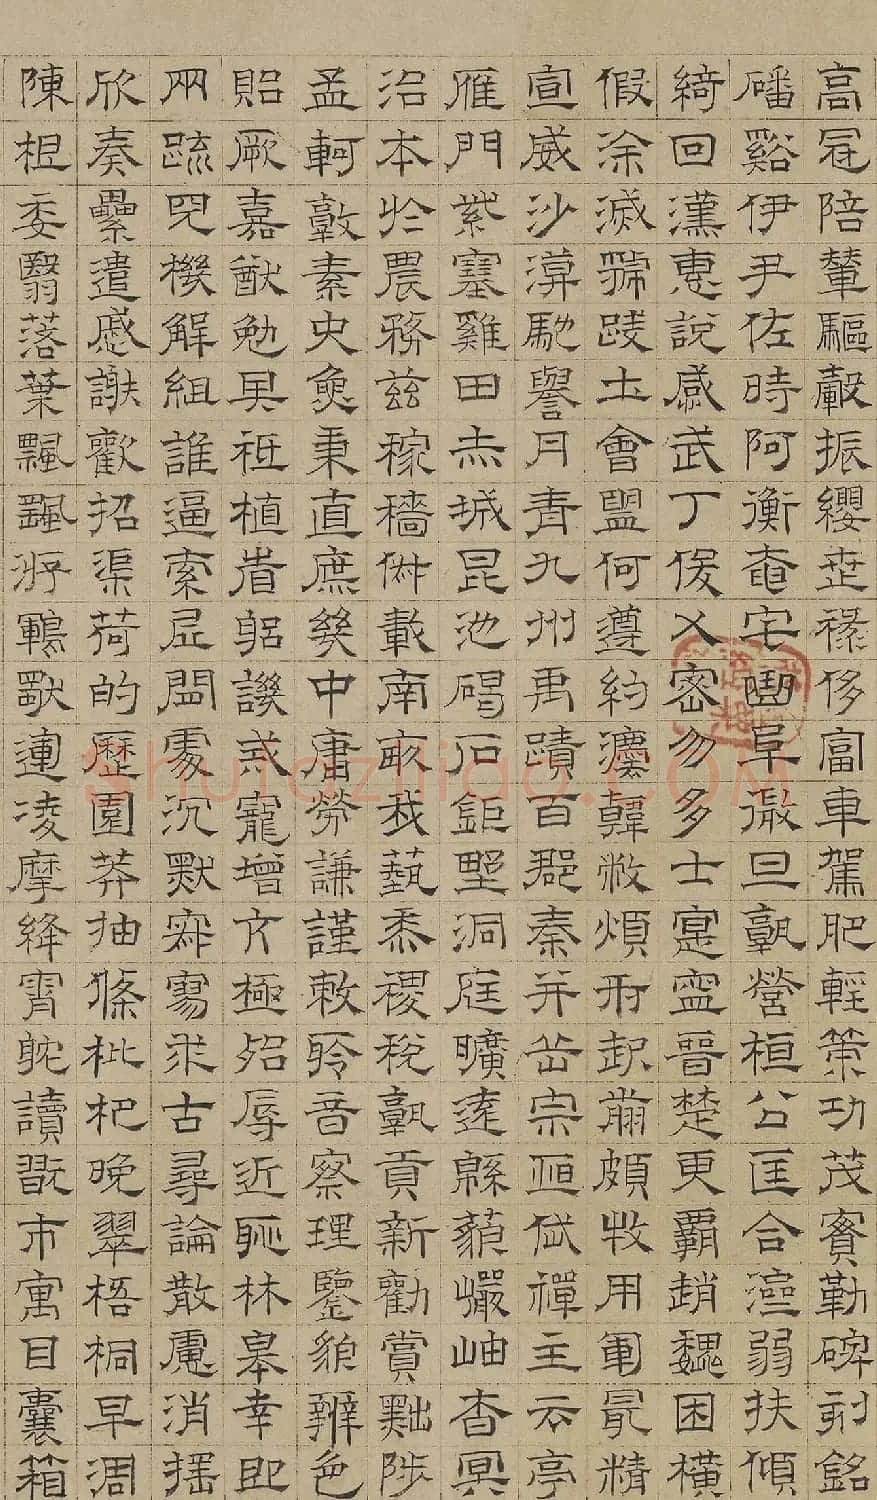 高冠陪輦驅轂振纓世祿侈富車駕肥輕策功茂實勒碑刻銘
磻谿伊尹佐時阿衡奄宅曲阜微旦孰營桓公匡合濟弱扶傾
綺回漢惠說感武丁俊乂密勿多士寔寧晉楚更霸趙魏困橫
假涂滅虢踐土會盟何遵約灋韓弊煩刑起翦頗牧用軍最精
宣威沙漠馳譽丹青九州禹蹟百郡秦并岳宗恒岱禪主云亭
雁門紫塞雞田赤城昆池碣石鉅野洞庭曠遠緜藐巖岫杳冥
治本於農務茲稼穡俶載南畝我藝黍稷稅孰貢新勸賞黜陟
孟軻敦素史魚秉直庶幾中庸勞謙謹敕聆音察理鑒貌辨色
貽厥嘉猷勉其祗植省躬譏戒寵增亢極殆辱近恥林皋幸即
兩疏見機解組誰逼索居閒處沉默寂寥求古尋論散慮消搖
欣奏纍遣慼謝歡招渠荷的歷園莽抽條枇杷晚翠梧桐早凋
陳根委翳落葉飄颻游鵾獨運凌摩絳霄躭讀翫市寓目囊箱
shufaziliao.COM